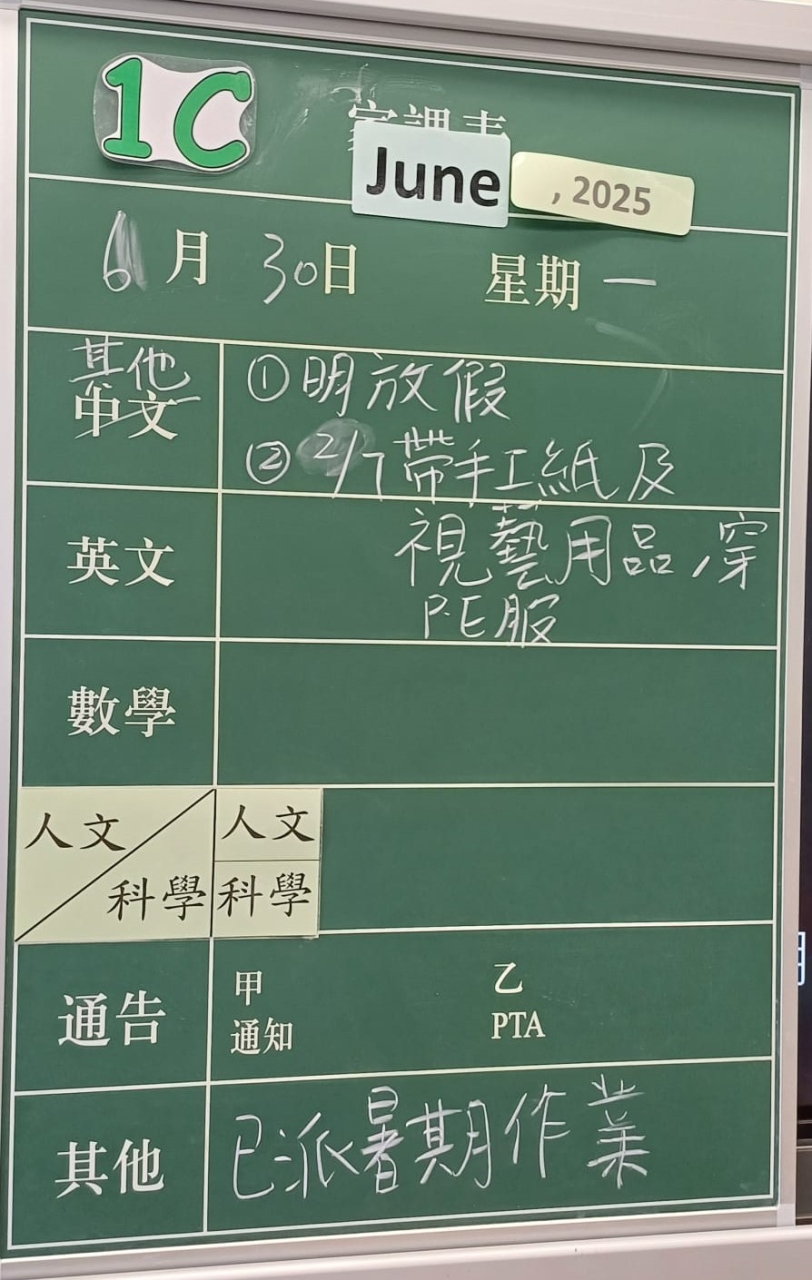 1C
家課表
June , 2025
6月30日 星期一
其他
中文
①明放假
②2/7帶手工紙及
英文
視藝用品,穿
P.E服
數學
人文
科學
人文
科學
通告
甲 乙
通知 PTA
其他
已派暑期作業